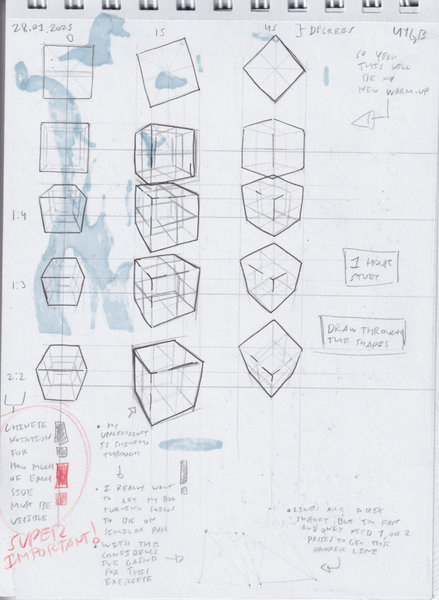 28.01.2021
0
15
45 } DEGREES
SO YEAH
THIS WILL
BE MY
NEW WARM-UP
1:4
1:3
2:2
1 HOUR
STUDY
DRAW THROUGH
THE SHAPES
CHINESE
NOTATION
FOR
HOW MUCH
OF EACH
SIDE
MUST BE
VISIBLE
SUPER
IMPORTANT!
• MY
UNCERTAINTY
IS SHINING
THROUGH
• I REALLY WANT
TO GET MY BOX
TURNING SKILLS
TO BE ON
SIMILAR PAR
• WITH THE
CONFIDENCE
I'VE GAIND
FOR THIS
EXERCISE
• LINES ARE A BIT
SHAKY BUT I'M FAST
AND ONLY NEED 1 OR 2
PASSES TO GET THE
PROPER LINE